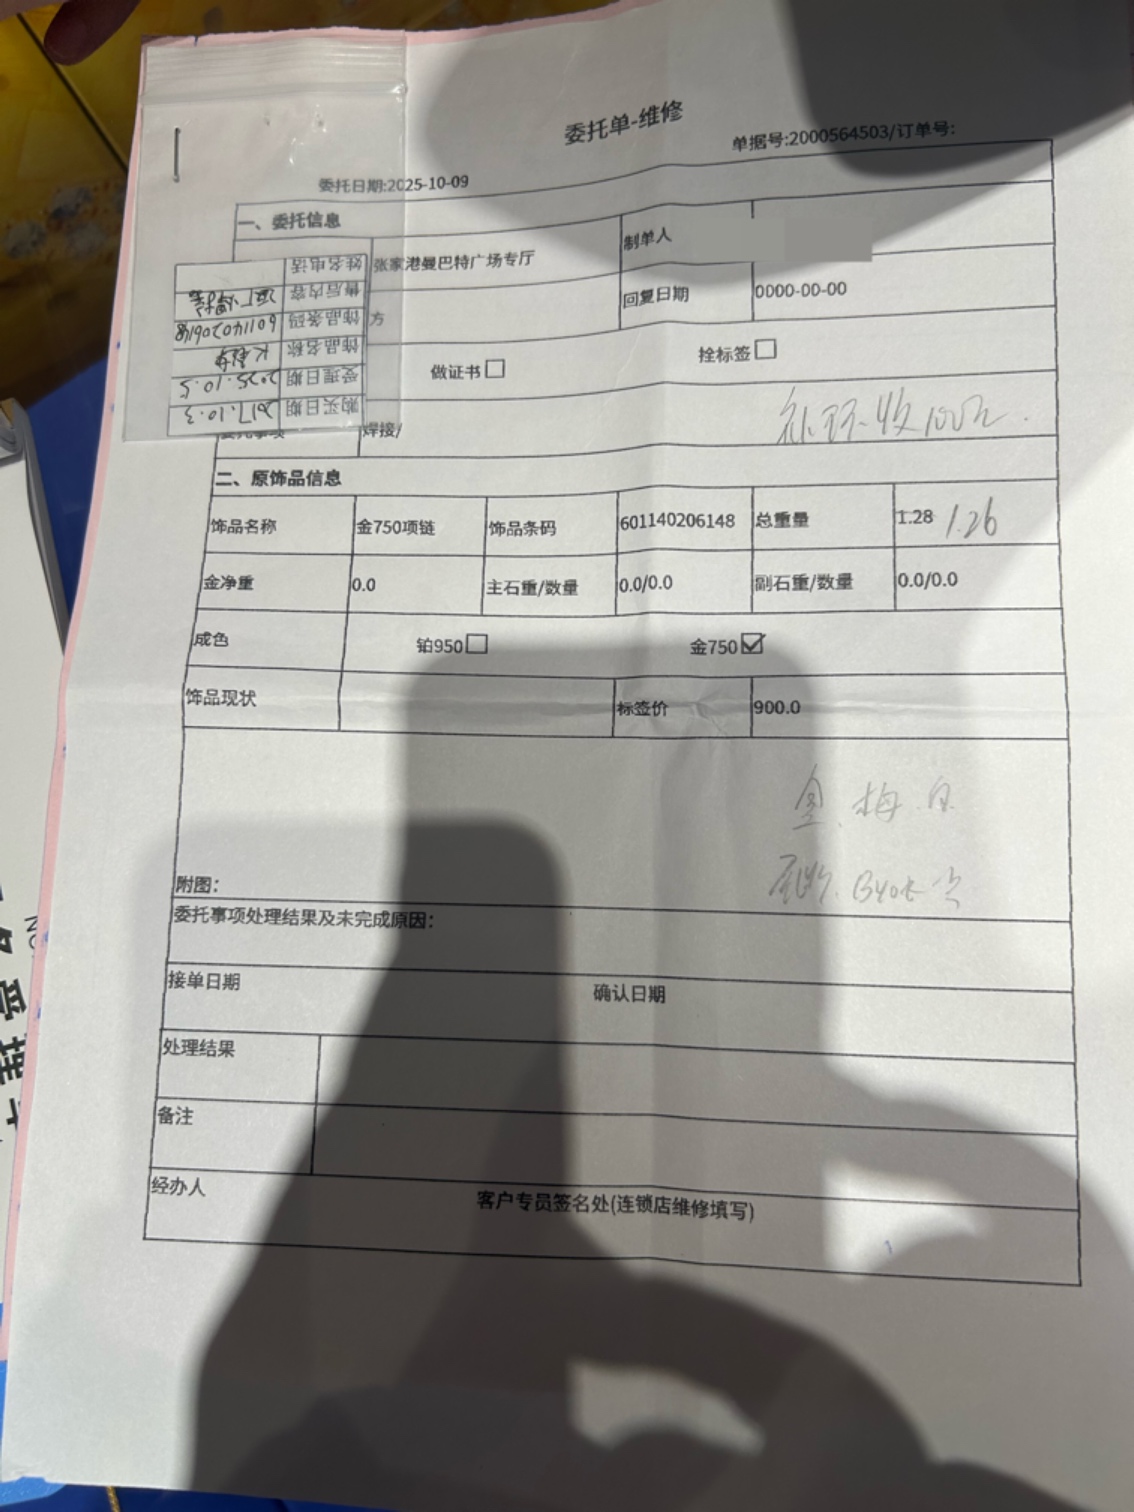 委托单-维修
单据号:2000564503/订单号:
委托日期:2025-10-09
一、委托信息
张家港曼巴特广场专厅
制单人
方
回复日期
0000-00-00
做证书
拴标签
委托事项
焊接/
补环收100元.
姓名电话
售后内容
饰品条码 601140206148
饰品名称
受理日期 2025.10.5
购买日期 2017.10.3
二、原饰品信息
饰品名称 金750项链 饰品条码 601140206148 总重量 1.28 1.26
金净重 0.0 主石重/数量 0.0/0.0 副石重/数量 0.0/0.0
成色 铂950 金750
饰品现状 标签价 900.0
梅
附图:
委托事项处理结果及未完成原因:
接单日期 确认日期
处理结果
备注
经办人 客户专员签名处(连锁店维修填写)